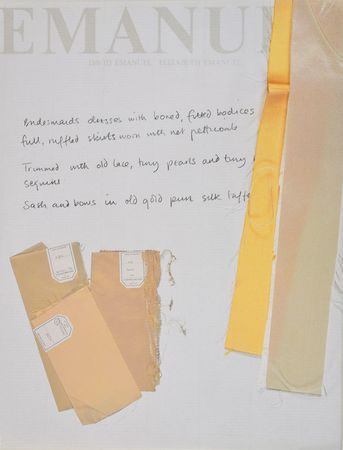 EMANU
DAVID EMANUEL ELIZABETH EMANUEL
Bridesmaids dresses with boned, fitted bodices
full, ruffled skirts worn with net petticoats
Trimmed with old lace, tiny pearls and tiny
sequins
Sash and bows in old gold pure silk taffe